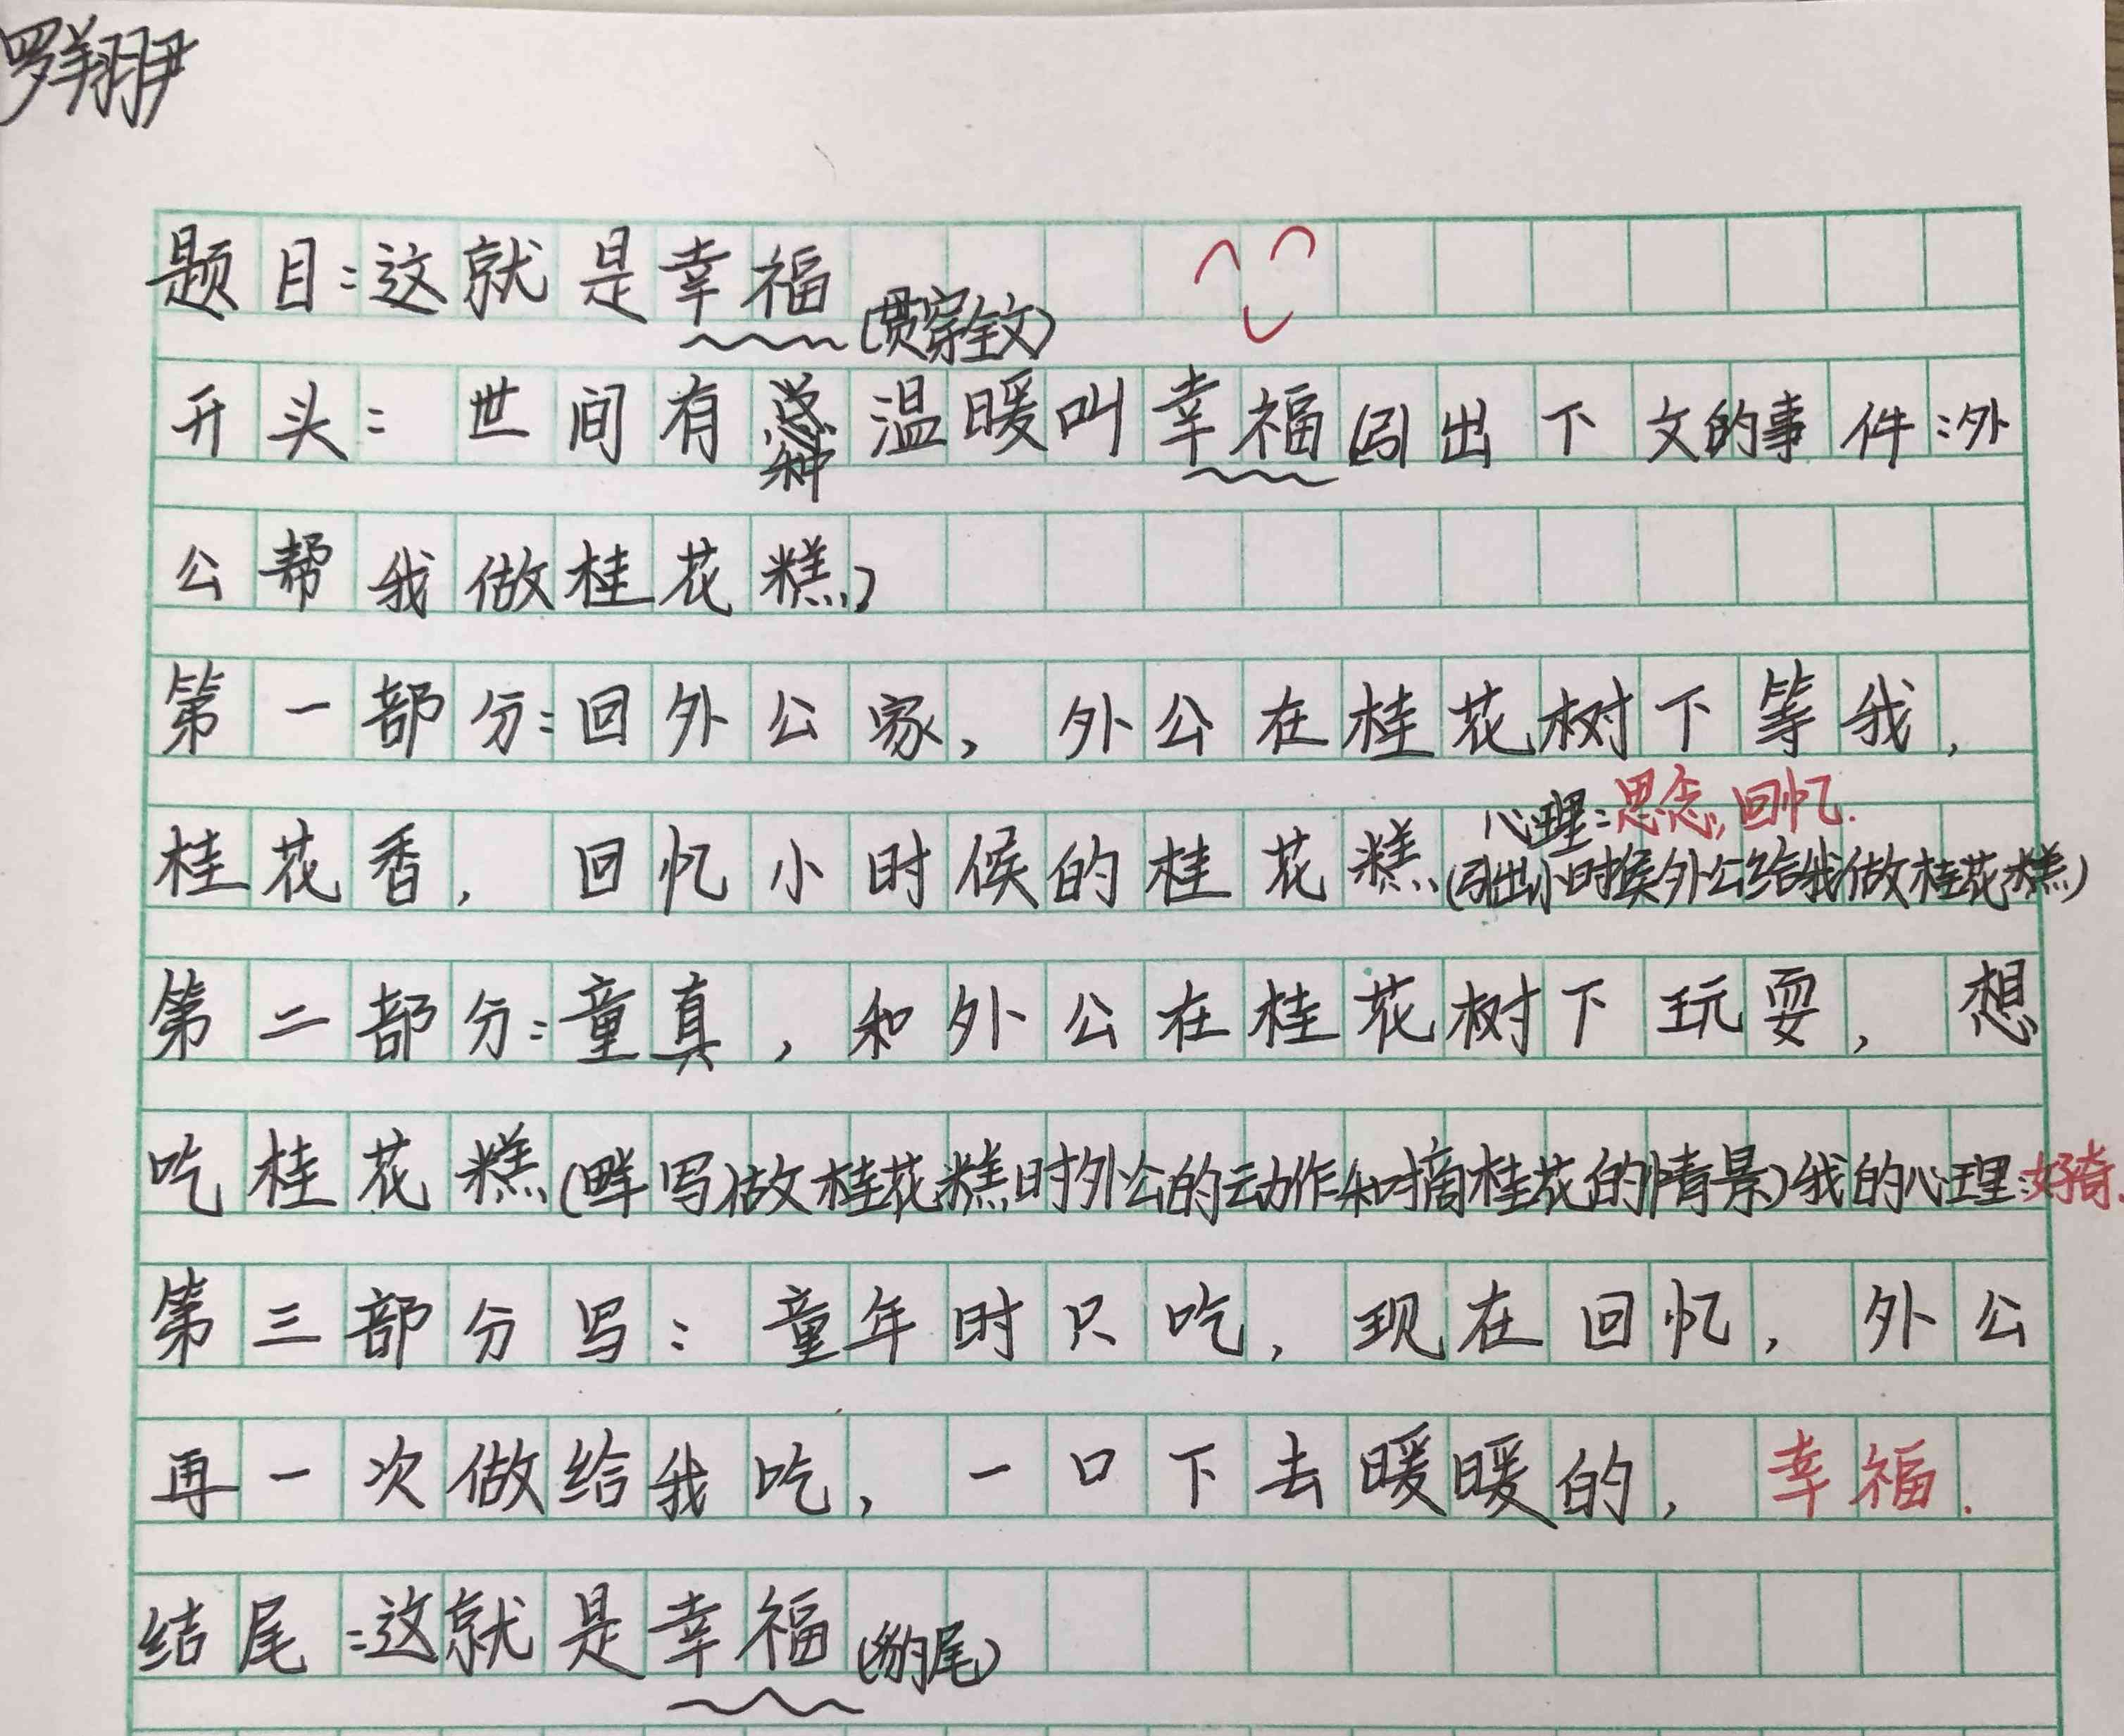 罗翔尹
题目:这就是幸福
(贯穿全文)
开头: 世间有种温暖叫幸福(引出下文的事件:外
公帮我做桂花糕)
第一部分:回外公家, 外公在桂花树下等我,
心理:思念,回忆.
桂花香, 回忆小时候的桂花糕(引出小时候外公给我做桂花糕)
第二部分:童真, 和外公在桂花树下玩耍, 想
吃桂花糕(详写做桂花糕时外公的动作和摘桂花的情景)我的心理:好奇.
第三部分写: 童年时只吃, 现在回忆, 外公
再一次做给我吃, 一口下去暖暖的, 幸福.
结尾:这就是幸福(豹尾)